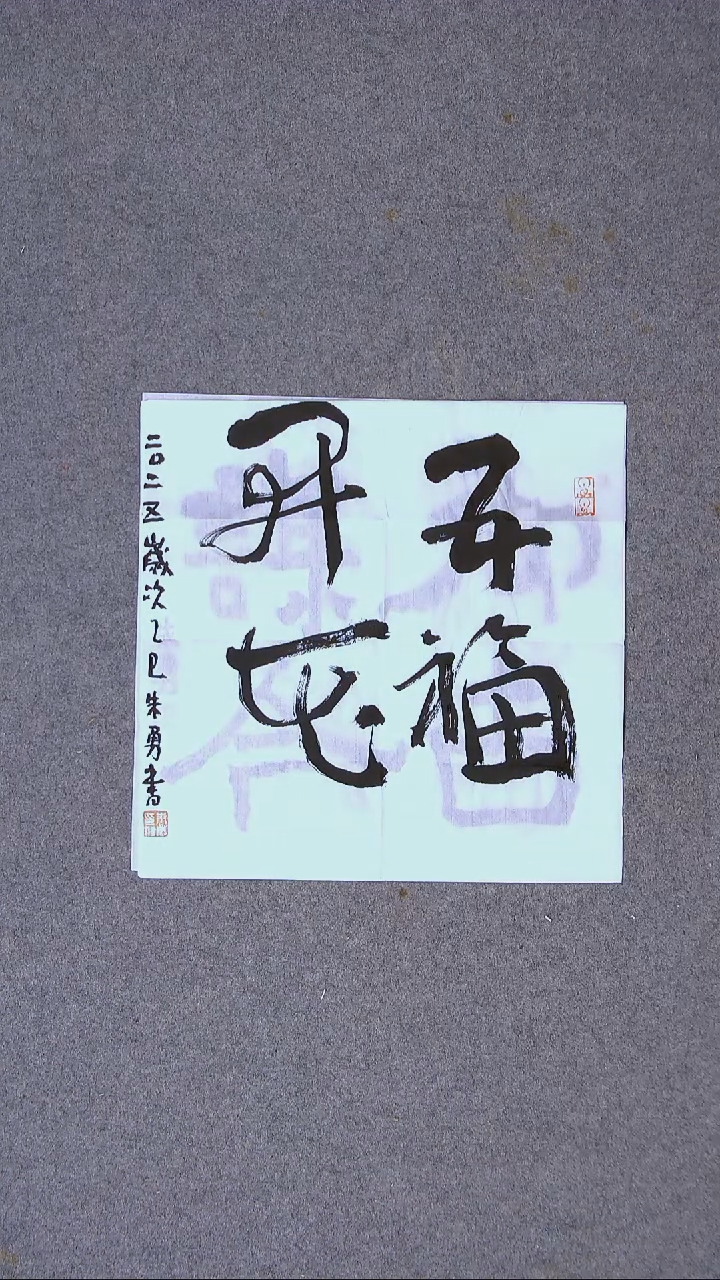 五福
开花
二〇二五歲次乙巳朱勇書